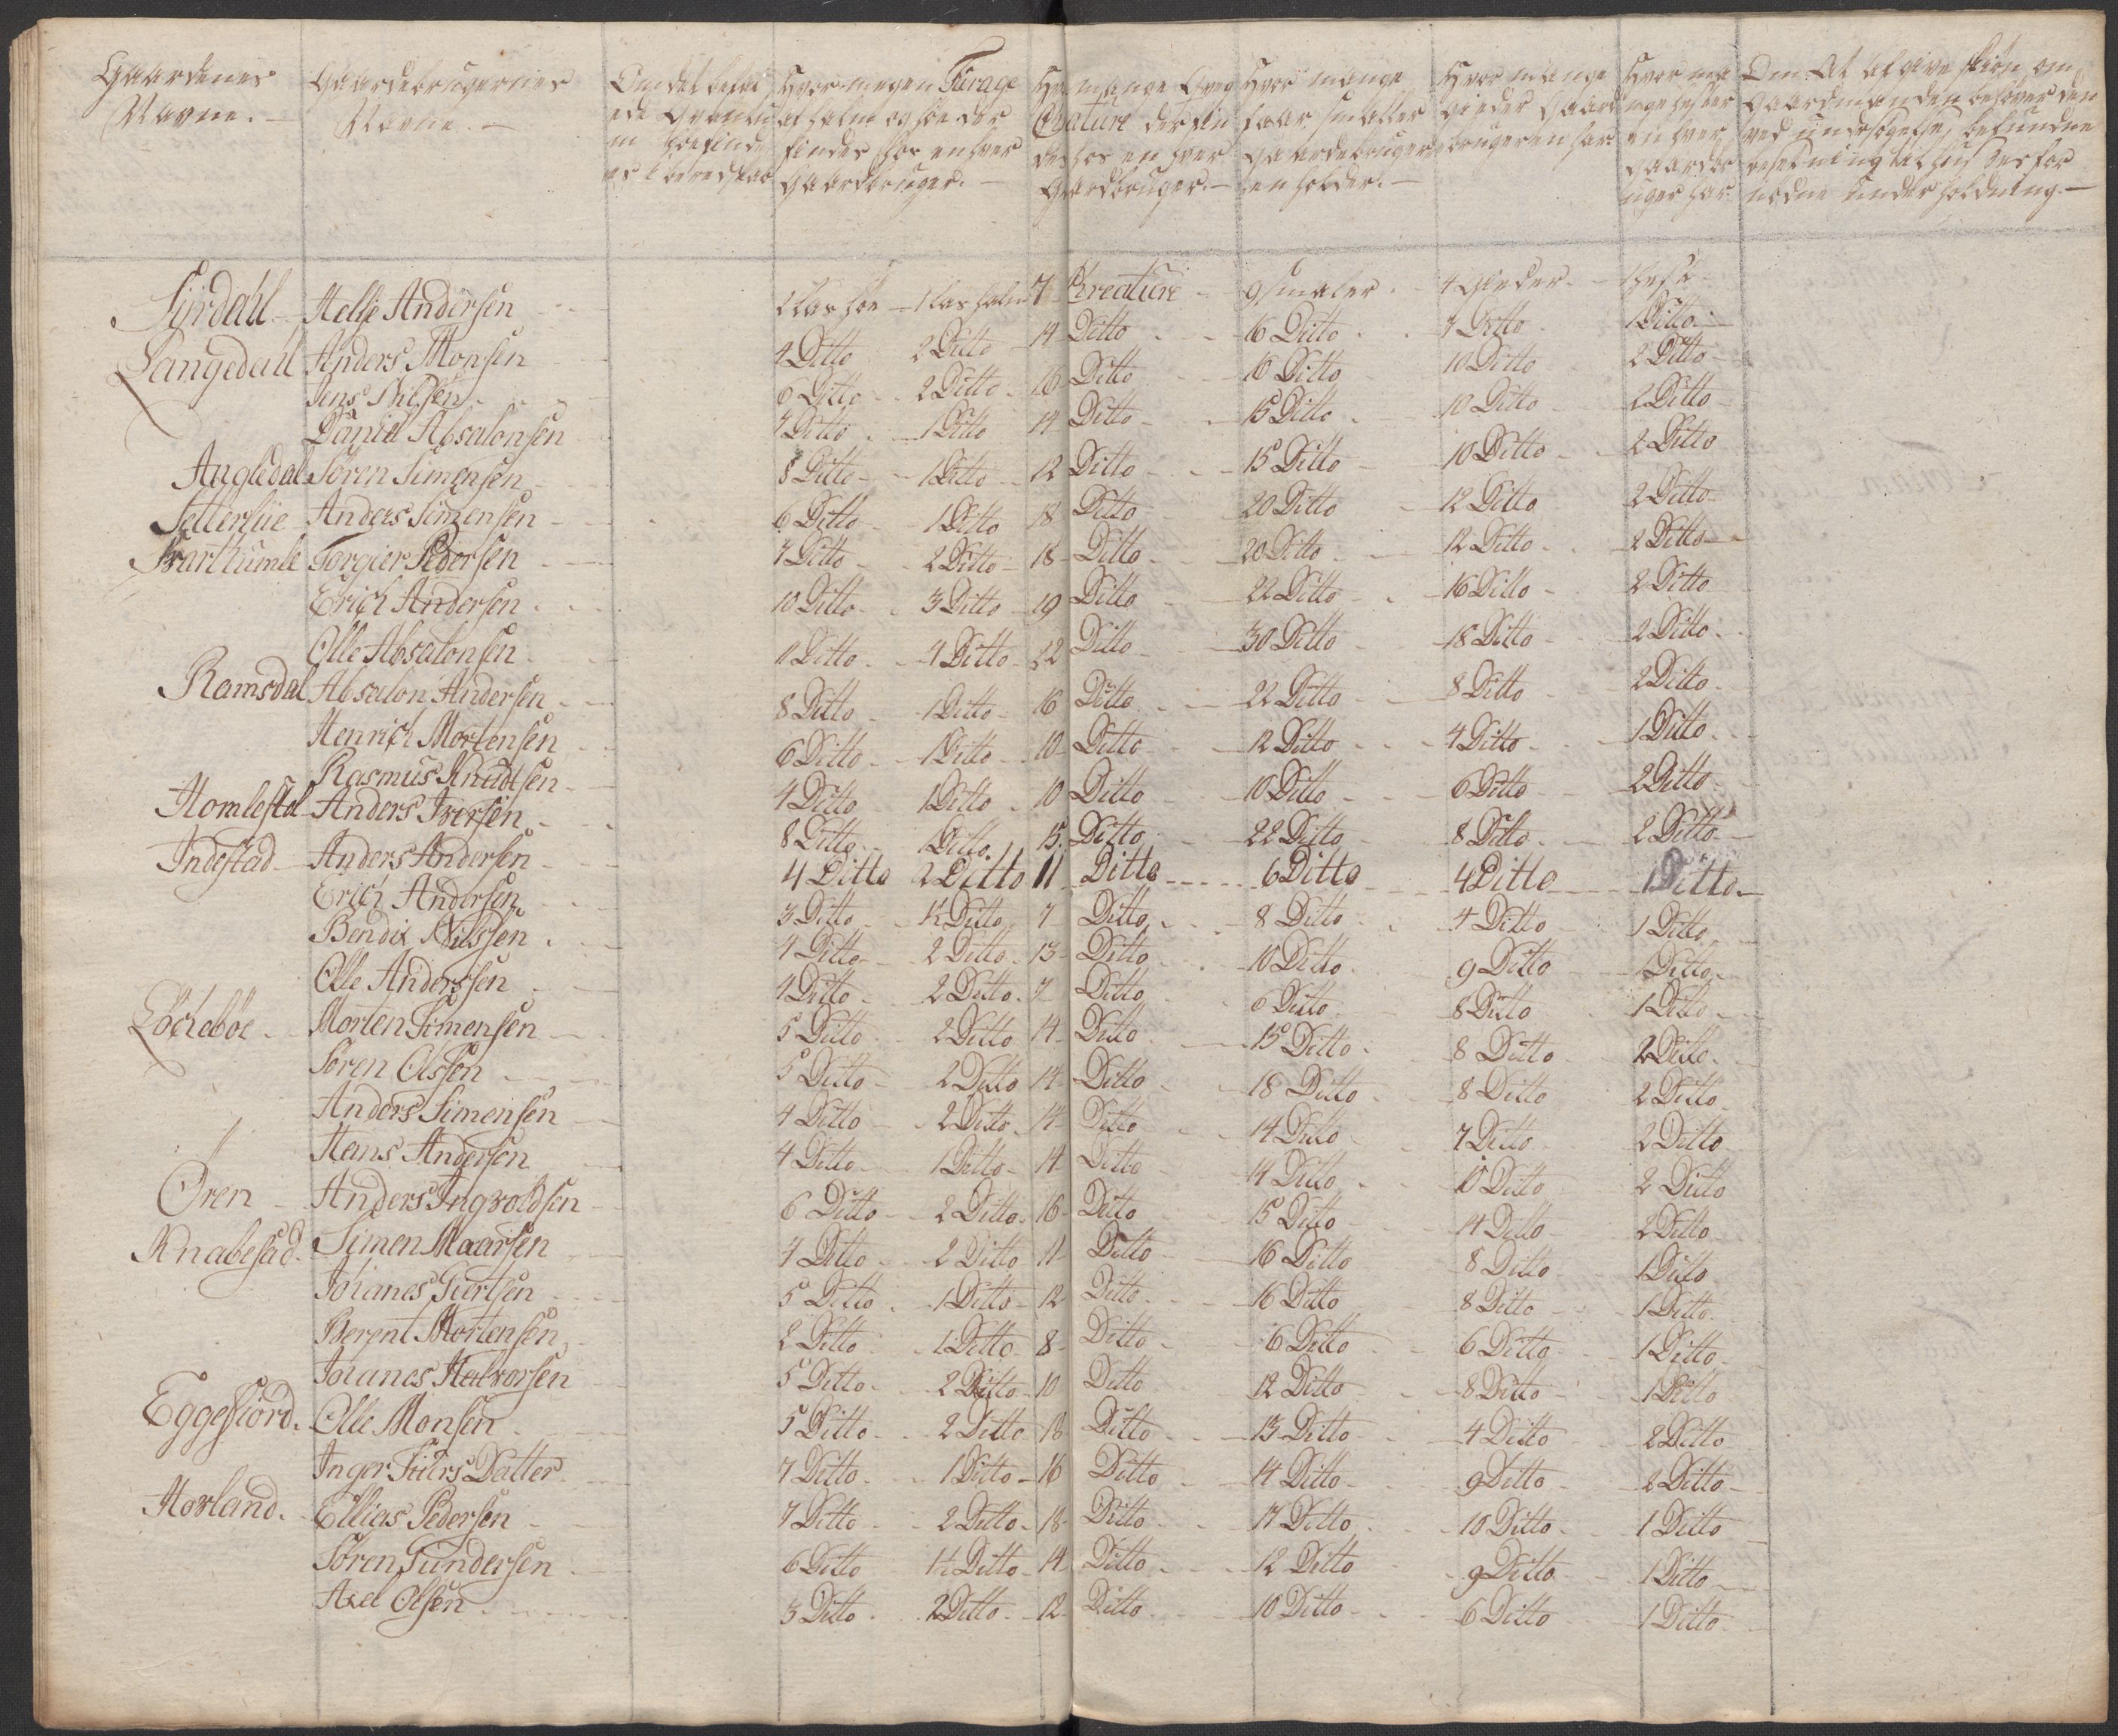 Gaardenes Navne.
Gaardebrugernes Navne.
Hvor megen Furage af halm og höe der findes hos enhver Gaardbruger.
mange Creature der findes hos en hver Gaardbruger.
Hvor mange Faar Smaller Gaardebrugeren holder.
Hvor mange Gieder Gaardbrugeren har
Hvor mange heste en hver Gaardbruger har.
Om At afgive skiön, om Gaardmanden behöver den ved undersögelse befundne underholdning.
Helje Andersen 1 las halm 7 Kreature 9 smaler 4 Gieder 1 hest
Langedahl Anders Monsen 4 Ditto 2 Ditto 14 Ditto 16 Ditto 7 Ditto 1 Ditto
Jens Nilsen 6 Ditto 2 Ditto 16 Ditto 16 Ditto 10 Ditto 2 Ditto
Daniel Absalonsen 7 Ditto 1 Ditto 14 Ditto 15 Ditto 10 Ditto 2 Ditto
Angledal Sören Simensen 8 Ditto 1 Ditto 12 Ditto 15 Ditto 10 Ditto 2 Ditto
Setterlie Anders Simensen 6 Ditto 1 Ditto 18 Ditto 20 Ditto 12 Ditto 2 Ditto
Svarthumle Torgier Pedersen 7 Ditto 2 Ditto 18 Ditto 20 Ditto 12 Ditto 2 Ditto
Erich Andersen 10 Ditto 3 Ditto 19 Ditto 22 Ditto 16 Ditto 2 Ditto
Olle Absalonsen 11 Ditto 4 Ditto 22 Ditto 30 Ditto 18 Ditto 2 Ditto
Ramsdal Absalon Andersen 8 Ditto 1 Ditto 16 Ditto 22 Ditto 8 Ditto 2 Ditto
Henrich Mortensen 6 Ditto 1 Ditto 10 Ditto 12 Ditto 4 Ditto 1 Ditto
Rasmus Knudtsen 4 Ditto 1 Ditto 10 Ditto 10 Ditto 6 Ditto 2 Ditto
Homlestøl Anders Iversen 8 Ditto 1 Ditto 15 Ditto 22 Ditto 8 Ditto 2 Ditto
Indestad Anders Andersen 4 Ditto 2 Ditto 11 Ditto 6 Ditto 4 Ditto 1 Ditto
Erich Andersen 3 Ditto 1½ Ditto 7 Ditto 8 Ditto 4 Ditto 1 Ditto
Bendix Nilssen 4 Ditto 2 Ditto 13 Ditto 10 Ditto 9 Ditto 1 Ditto
Olle Anderssen 4 Ditto 2 Ditto 7 Ditto 6 Ditto 8 Ditto 1 Ditto
Löcheböe Morten Simensen 5 Ditto 2 Ditto 14 Ditto 15 Ditto 8 Ditto 2 Ditto
Sören Olsson 5 Ditto 2 Ditto 14 Ditto 18 Ditto 8 Ditto 2 Ditto
Anders Simensen 4 Ditto 2 Ditto 14 Ditto 14 Ditto 7 Ditto 2 Ditto
Hans Andersen 4 Ditto 1 Ditto 14 Ditto 14 Ditto 10 Ditto 2 Ditto
Ören Anders Ingvoldsen 6 Ditto 2 Ditto 16 Ditto 15 Ditto 14 Ditto 2 Ditto
Knabestad Simen Maarsen 4 Ditto 2 Ditto 11 Ditto 16 Ditto 8 Ditto 1 Ditto
Johanes Giertsen 5 Ditto 1 Ditto 12 Ditto 16 Ditto 8 Ditto 1 Ditto
Berent Mortensen 2 Ditto 1 Ditto 8 Ditto 6 Ditto 6 Ditto 1 Ditto
Johanes Halvorsen 5 Ditto 2 Ditto 10 Ditto 12 Ditto 8 Ditto 1 Ditto
Eggesiord Olle Monsen 5 Ditto 2 Ditto 18 Ditto 13 Ditto 4 Ditto 2 Ditto
Inger Siurs Datter 7 Ditto 1 Ditto 16 Ditto 14 Ditto 9 Ditto 2 Ditto
Hovland Ellias Pedersen 7 Ditto 2 Ditto 18 Ditto 17 Ditto 10 Ditto 1 Ditto
Sören Gundersen 6 Ditto 1½ Ditto 14 Ditto 12 Ditto 9 Ditto 1 Ditto
Axel Olsen 3 Ditto 2 Ditto 12 Ditto 10 Ditto 6 Ditto 1 Ditto